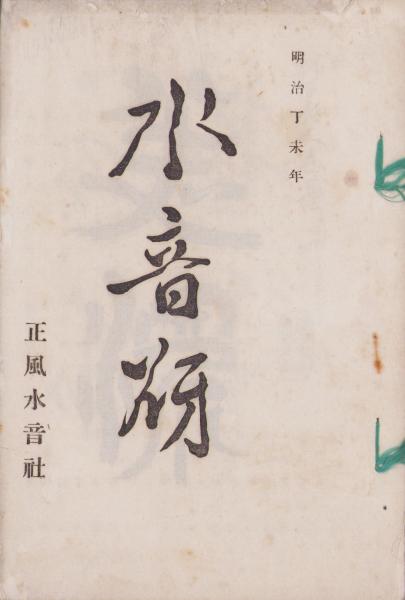 明治丁未年
水音
正風水音社